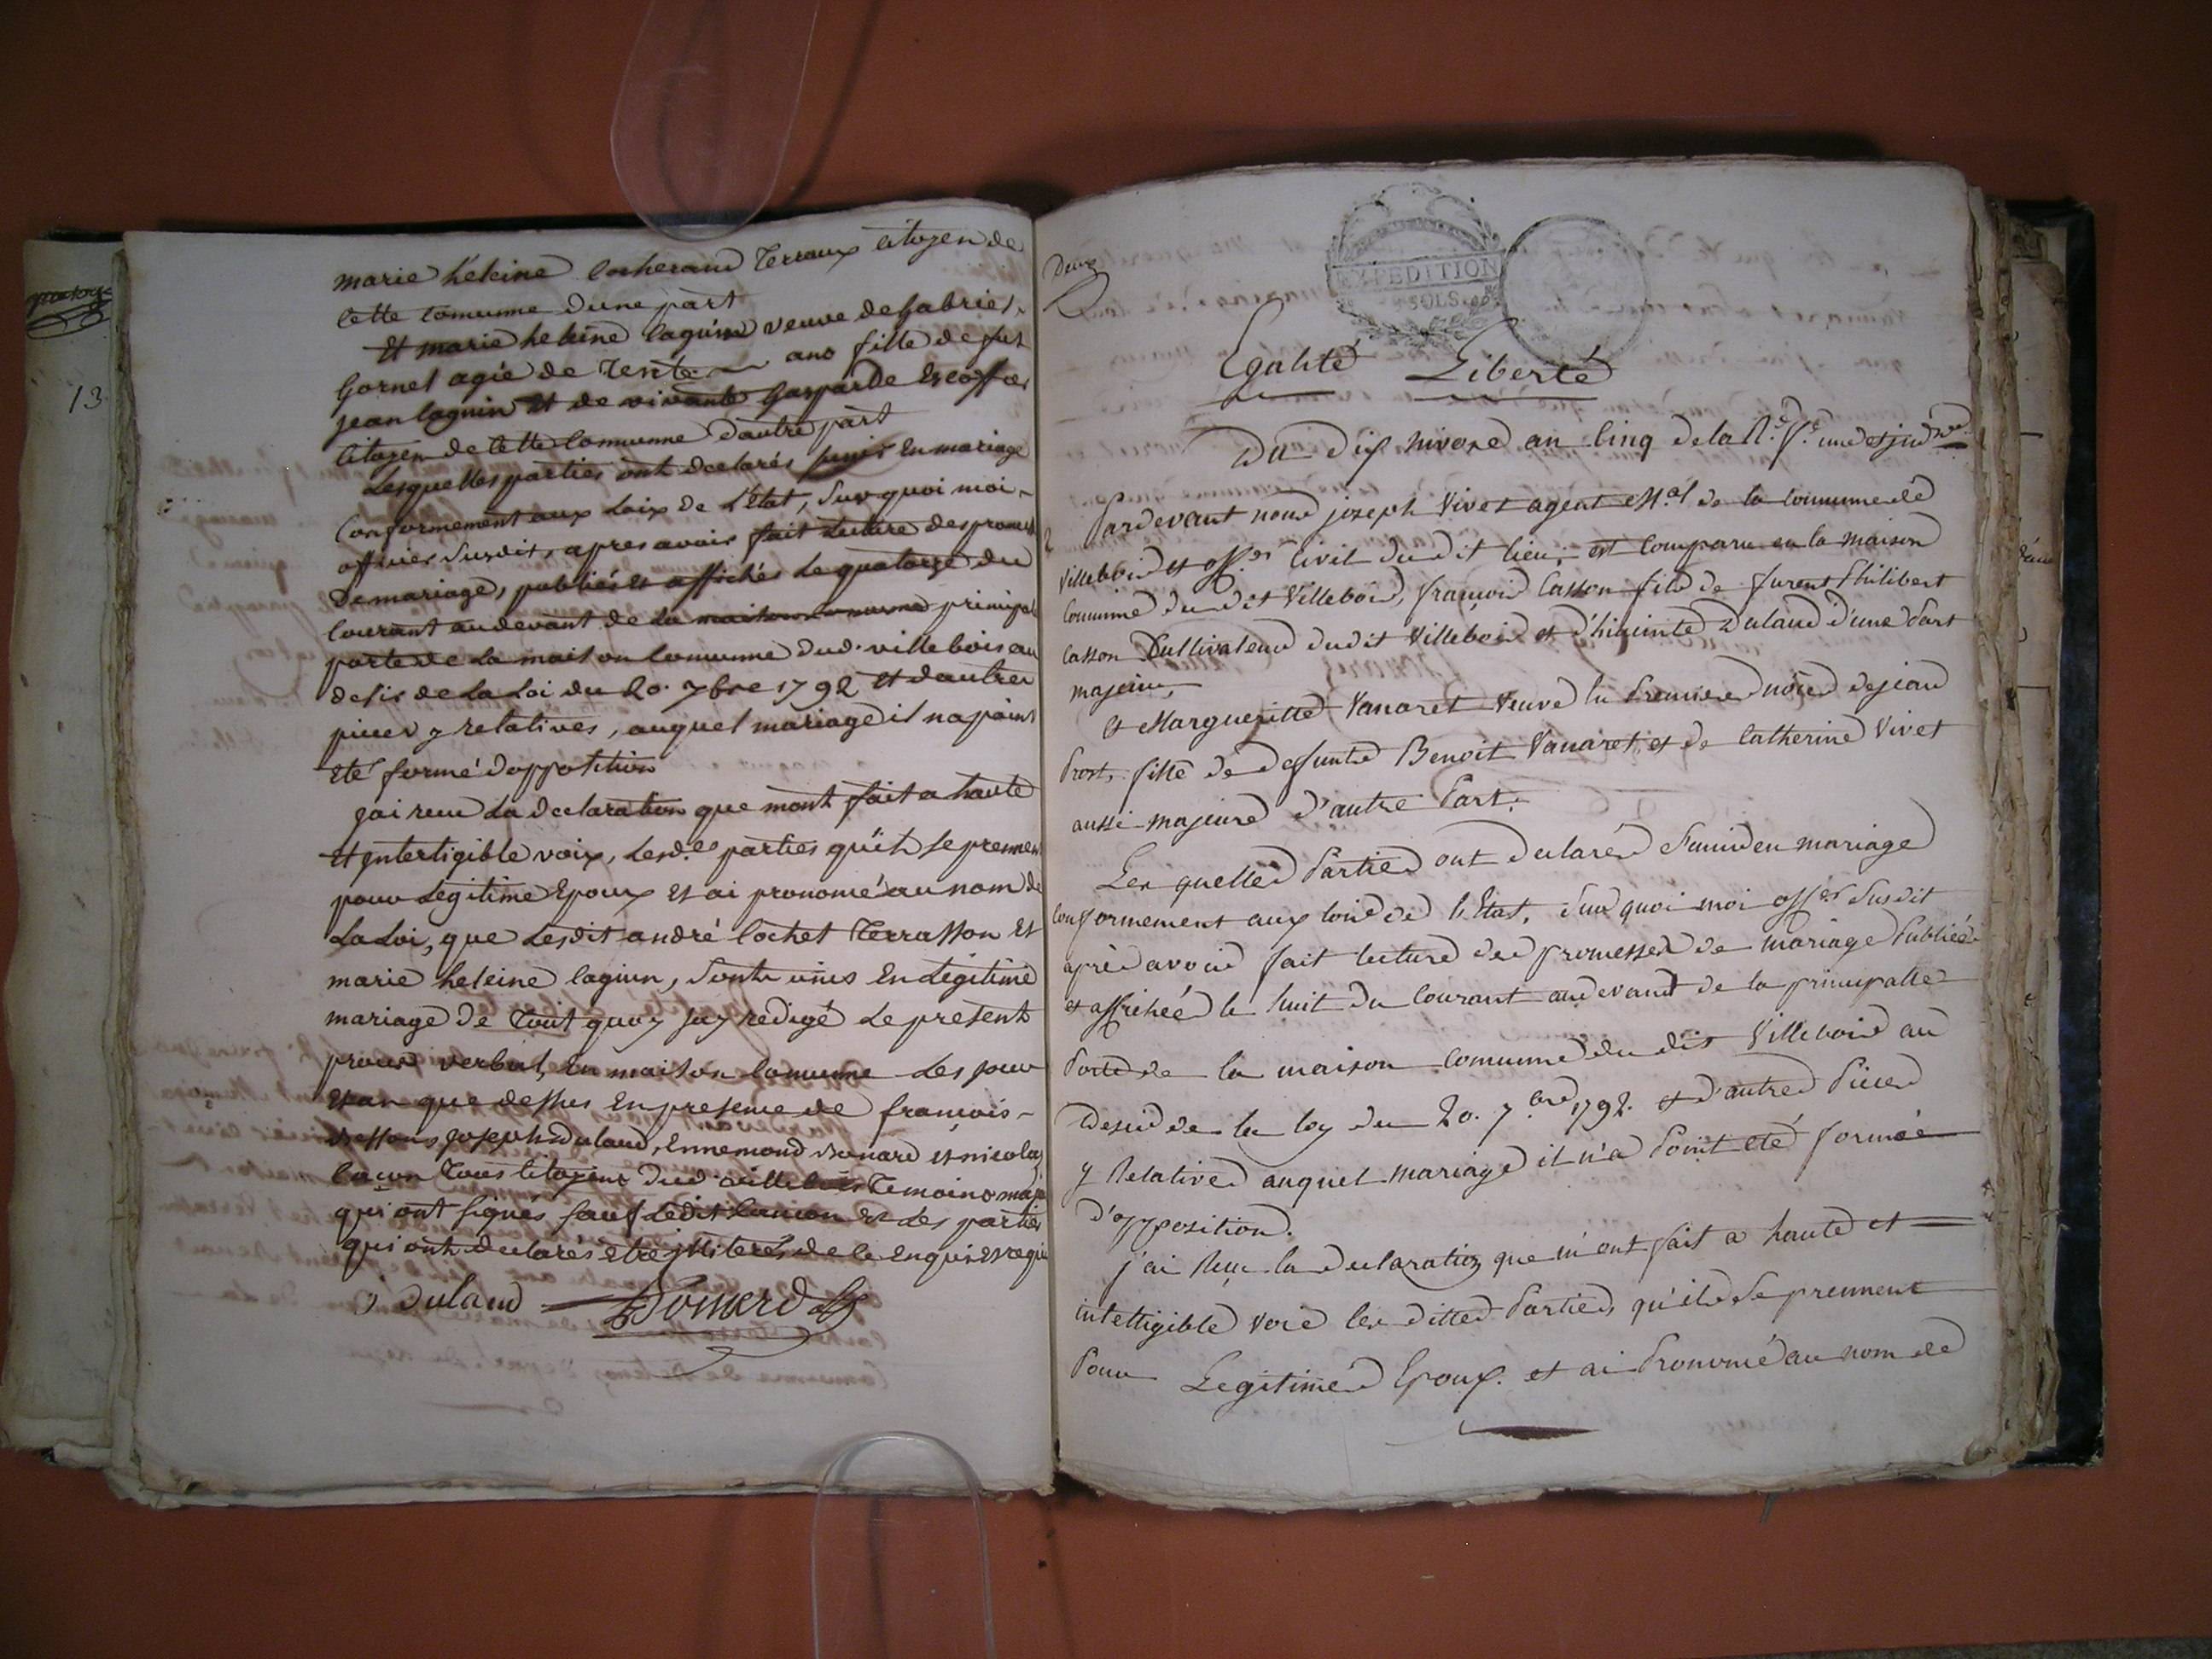 marie héleine cocherand Terraux citoyen de
cette comunne dune part
Et marie heleine lagnin veuve de gabriel
Gornel agée de Trente ans fille de feu
jean lagnin Et de vivante Gasparde Escoffier
Citoyen de Cette Comunne dautre part
Lesquelles parties ont declarés sunir En mariage
Conformement aux Loix de L'Etat, Sur quoi moi
officier Susdit, apres avoir fait Lecture des promess
de mariage, publiés et affichés Le quatorze du
Courant au devant de La principal
porte de La maison Comunne dud. villebois au
desir de La Loi du 20. 7bre 1792 Et dautres
pieces y relatives, auquel mariage il na point
Eté formé dopposition
Jai recu La declaration que mont fait a haute
Et Intertigible voix, Lesd.es parties quils se prennen
pour Légitime Epoux Et ai prononcé au nom de
La Loi, que Lesdit andré Cochet Terrasson Et
marie heleine lagnin, Sont unis En Légitime
mariage de Tout quoy Jay rédigé Le present
procès verbal, En maison Comunne Les jour
Et an que dessus En presence de françois
joseph dulaud, Ennemond Et nicolas
Tous Citoyens dud. villebois Temoins maj
qui ont signés sauf Ledit Et Les parties
qui ont declarés Etre jlliterés de ce Enquis Et requis
j dulaud
13
Deux
EXPEDITION
SOLS
Egalité Liberté
Du dix nivose an Cinq de la R.e f.e une et ind.ble
Pardevant nous joseph Vivet agent M.al de la Commune de
Villebois et off.er Civil du dit lieu; est Comparu en la maison
Commune du dit Villebois, françois Casson fils de furent Philibert
Casson Cultivateur dudit Villebois et d'hiacinte Dulaud d'une Part
majeur,
Et Margueritte Vanaret Veuve en Premiere nôce de jean
Prost, fille de defuntd Benoit Vanaret, et de Catherine Vivet
aussi majeure d'autre Part.
Les quelles Parties ont declarés Sunir en mariage
Conformement aux loix de l'Etat, Sur quoi moi off.er Susdit
après avoir fait lecture des promesses de mariage Publiées
et affichées le huit du Courant au devant de la principalle
Porte de la maison Comunne du dit Villebois au
desir de la loy du 20. 7.bre 1792. et d'autres Pieces
y Relatives auquel mariage il n'a Point eté formée
d'opposition.
j'ai Reçu la declaration que m'ont fait a haute et
intelligible voie les dittes Parties, qu'ils Se prennent
Pour Legitimes Epoux. et ai Prononcé au nom de